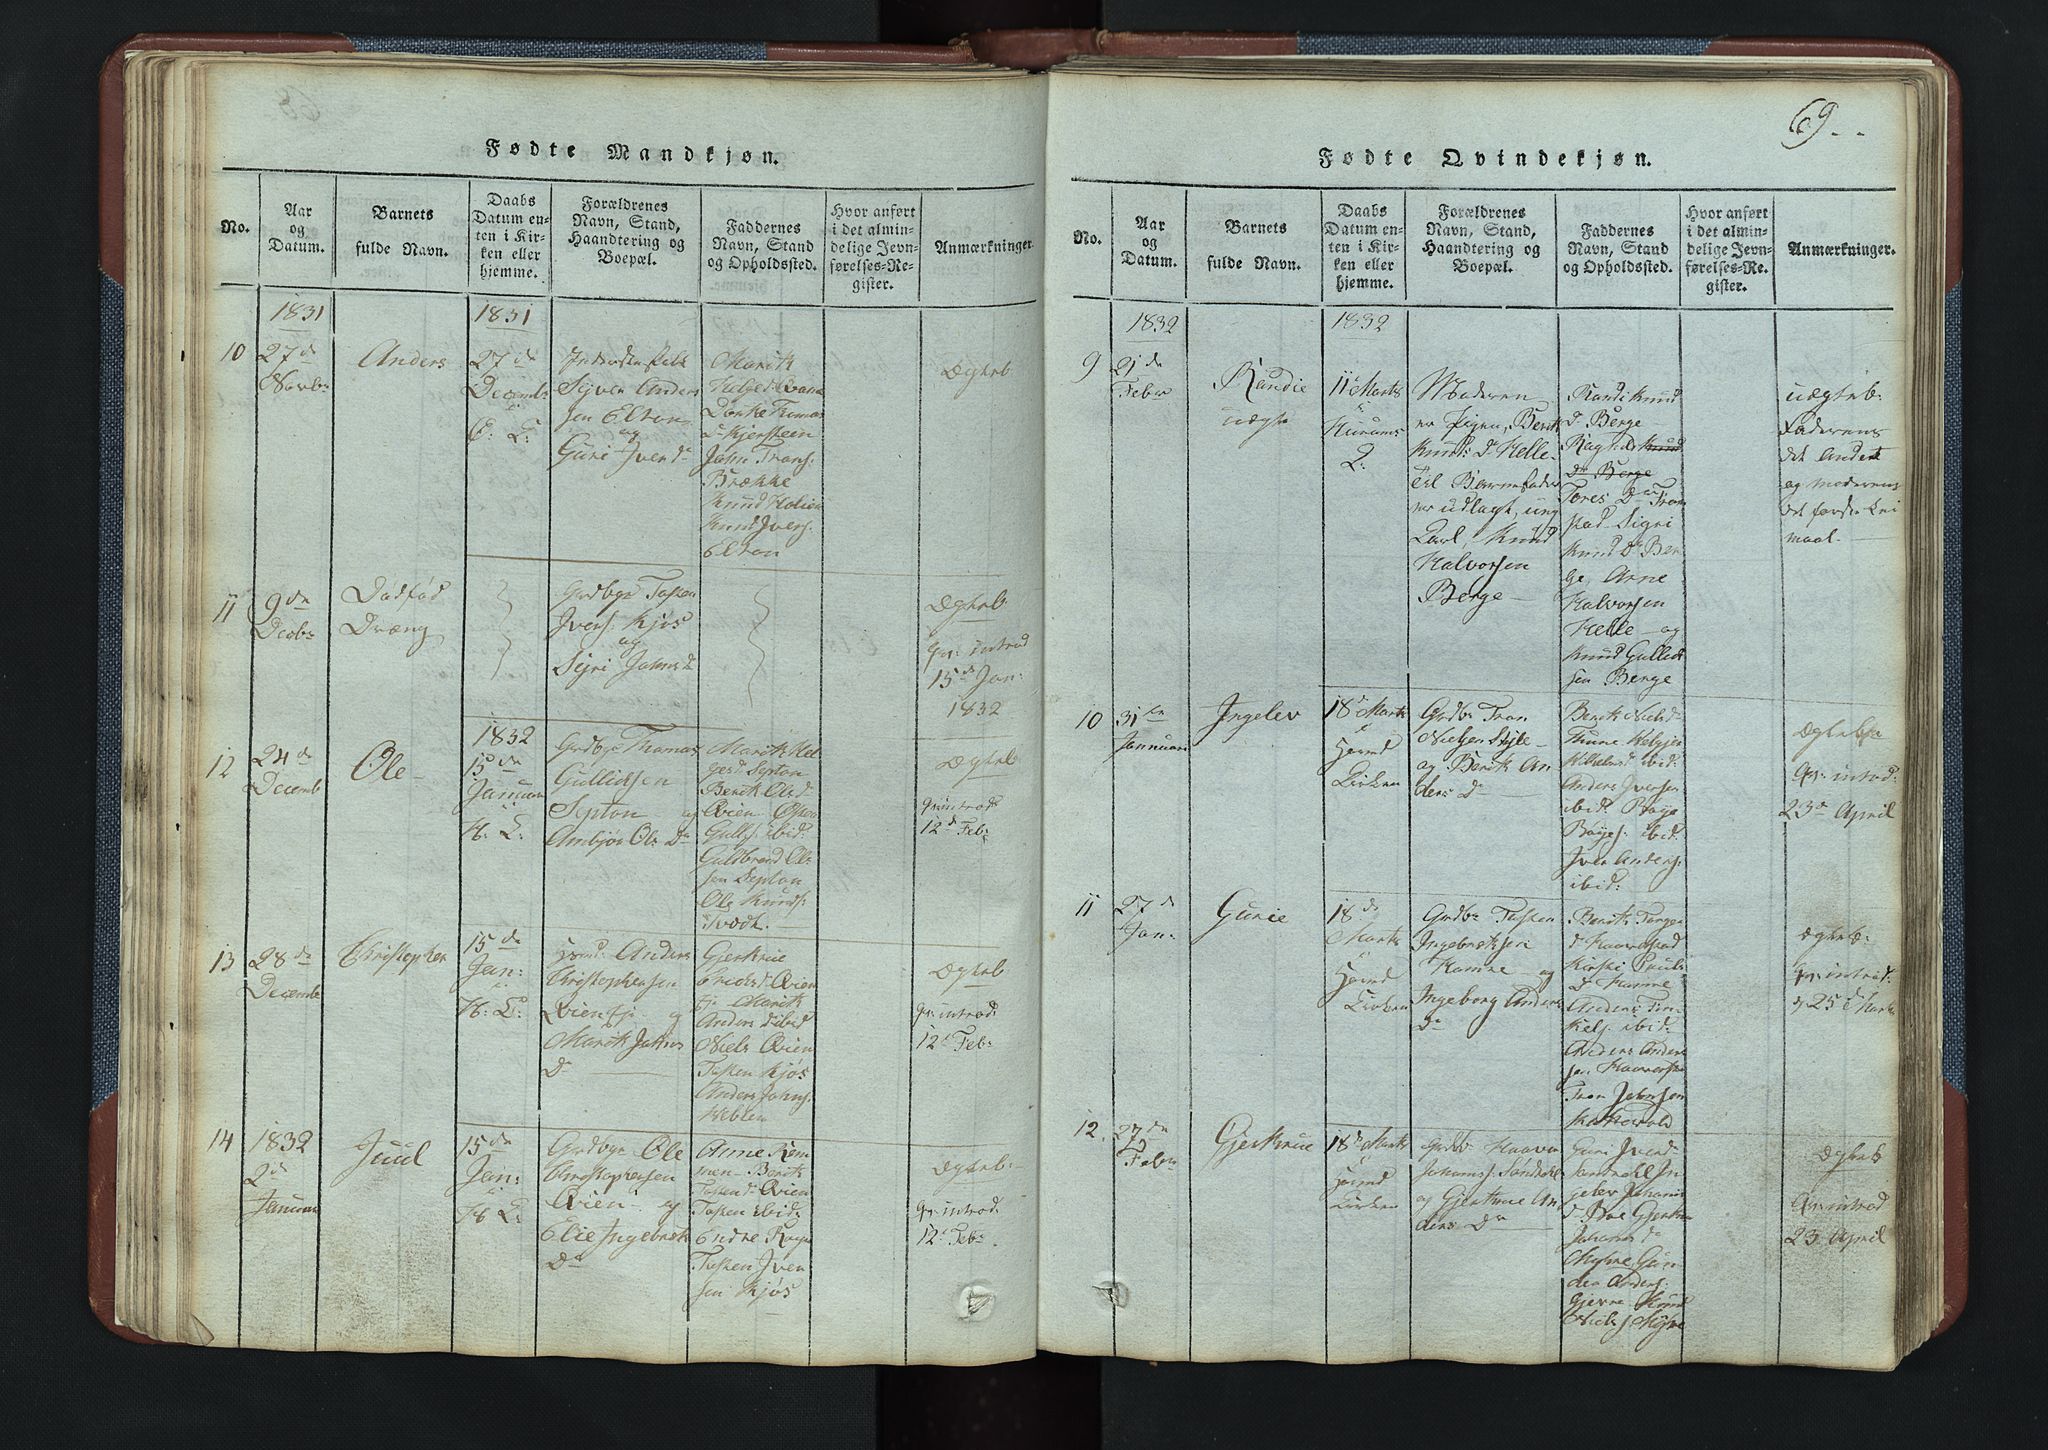 69.
Fødte Mandkjøn.
No.
Aar
og
Datum.
Barnets
fulde Navn.
Daabs
Datum en-
ten i Kir-
ken eller
hjemme.
Forældrenes
Navn, Stand,
Haandtering og
Boepæl.
Faddernes
Navn, Stand
og Opholdssted.
Hvor anført
i det almin-
delige Jevn-
førelses-Re-
gister.
Anmærkninger.
1831
1831
10
27de
Novbr
Anders
27de
Decembr
E: L:
Syver Anders
sen Elton
og
Guri Iversd
Marit
Helgesd Qvame
Dorthe Thomas
D. Kjersteen
John Trans:
Brække
Knud Holien
Knud Ivers:
Elton
Ægteb
11
9de
Decbr
Dødfød
Dræng
Grdbgr Tosten
Ivers: Kjøs
og
Sigri Johnsd
Ægteb.
Qv: introd
15de Jan:
1832
12
24de
Decemb
Ole
1832
15de
Januar
H: L:
Grdbgr Thomas
Gullidsen
Septon og
Ambjør Ols Dr
Marit Hel
gesd Septon
Berit Olsd
Qvien
Gulls: ibid:
Guldbrand Ol
sen Septon
Ole Knuds:
Tvedt.
Ægteb
Qv: introd
12de Feb:
13
28de
Decembr
Christopher
15de
Jan:
H: L:
Anders
Christophersen
Qvien og
Marit
Dr
Gjertrue
Endresd Qvien
Marit
Anders d ibid
Niels Qvien
Tosten Kjøs
Anders Johns:
Veblen
Ægteb
Qv: introd:
12de Feb:
14
1832
2de
Januar
Juul
15de
Jan:
H: L:
Grdbgr Ole
Christophersen
Qvien og
Elie Ingebrets
Dr
Anne Rem
men Berit
Tostens d: Qvien
Tosten ibid:
Endre
Tosten Iver
sen Kjøs
Ægteb:
Qv: introd:
12de Feb:
Fødte Qvindekjøn.
No.
Aar
og
Datum.
Barnets
fulde Navn.
Daabs
Datum en-
ten i Kir-
ken eller
hjemme.
Forældrenes
Navn, Stand,
Haandtering og
Boepæl.
Faddernes
Navn, Stand
og Opholdssted.
Hvor anført
i det almin-
delige Jevn-
førelses-Re-
gister.
Anmærkninger.
1832
1832
9
21de
Febr
Randie
uægte
11te Marts
Hurums
L:
Moderen
er Pigen Berit
Knuds Dr Helle.
Til Barnefader
er udlagt, ung
Carl, Knud
Halvorsen
Berge
Randi Knud
D Berge
Ragnild Knud
Dr Berge
Tores Dr Tram
stad Sigri
Knud Dr Ber
ge, Arne
Halvorsen
Helle og
Knud Gullid
sen Berge
uægteb:
Faderens
det andet
og Moderens
det første Lei
maal.
10
31te
Januar
Ingelev
18de Marts
Hoved
Kirken
Grdbr Tron
Nielsen Style
og Berit An
ders Dr
Berit Nielsd
Thune
Vilhelmsd ibid:
Anders Iversen
ibid:
ibid:
Iver Anders:
ibid:
Ægtebf
Qv: introd:
23de April
11
27de
Jan:
Gurie
18de
Marts
Hoved
Kirken
Grdbr Tosten
Ingebretsen
Hamre og
Ingeborg Anders
Dr
Berit Torger
d
Kirsti Pauls
D Hamre
Anders Tor
kels: ibid:
Anders Anders
sen
Tron Johnsen
Ægteb:
Qv: introd:
d 25de Marts
12.
27de
Febr
Gjertrue
18de Marts
Hoved
Kirken
Grdbr Haavor
Johanns: Sandahl
og Gjertrue An
ders Dr
Guri Iversd
Sandahl In
gelev Johanns
d Boe Gjertru
Johanns dr
Myhre Gun
der Anders:
Gjevre Knud
Niels: Myhre
Ægteb
Qv: introd
23 April